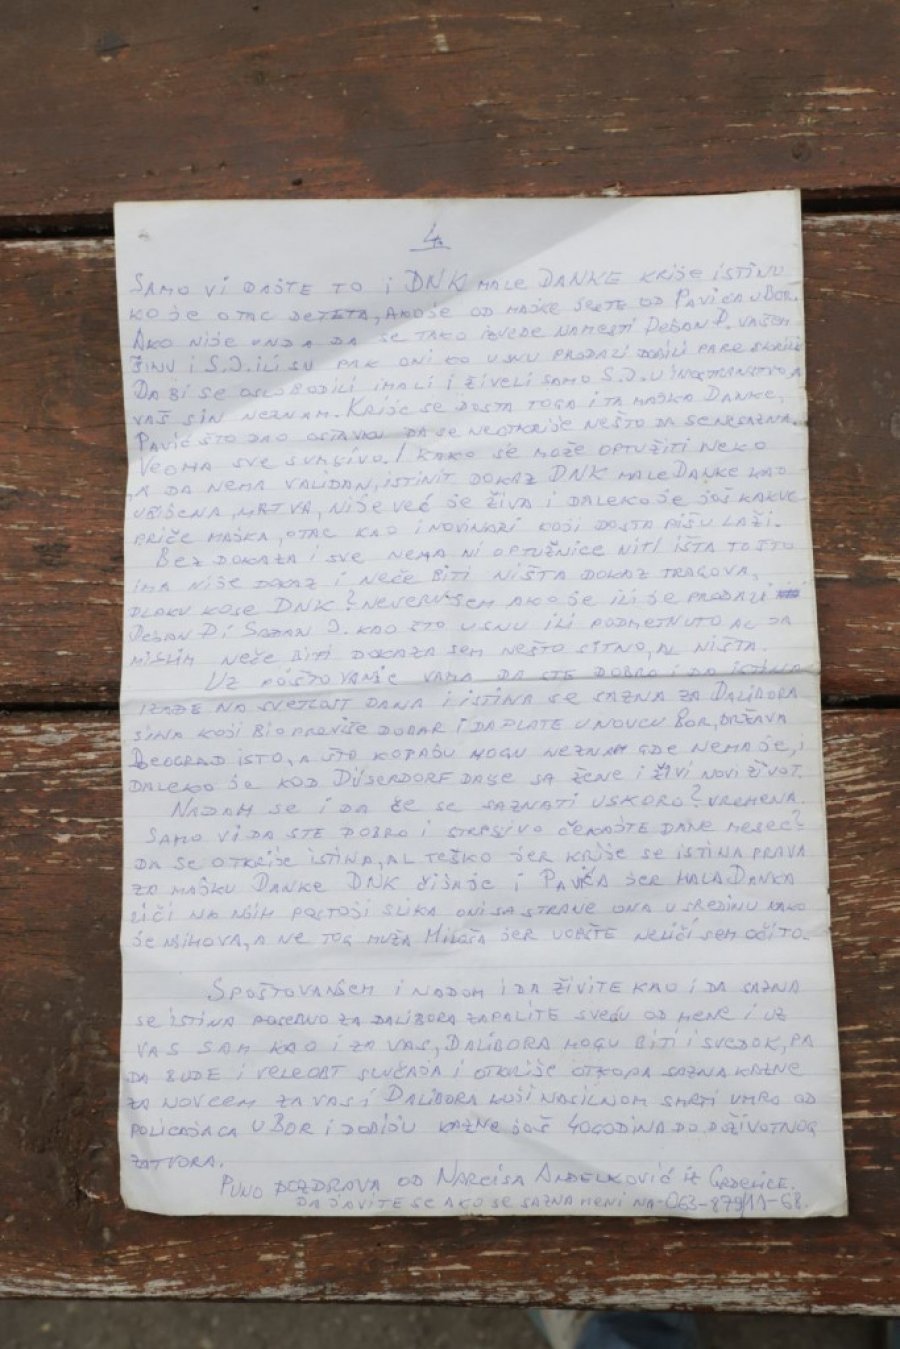 4.
SAMO VI DAJTE TO I DNK MALE DANKE KRIJE ISTINU
KO JE OTAC DETETA, A MOJE OD MAJKE JESTE OD PAVIĆA U BOR.
AKO NIJE ONDA DA SE TAKO IZVEDE NAMESTI DEJAN D. VAŠEM
SINU I S.J. ILI SU PAK ONI KO U SNU PRODAZI DOBILI PARE SKRILI
DA BI SE OSLOBODILI IMALI I ŽIVELI SAMO S.J. U INOSTRANSTVO, A
VAŠ SIN NEZNAM. KRIJE SE DOSTA TOGA I TA MAJKA DANKE,
PAVIĆ ŠTO DAO OSTAVKU DA SE NEOTKRIJE NEŠTO DA SE NESAZNA.
VEOMA SVE SUMJIVO. I KAKO SE MOŽE OPTUŽITI NEKO
A DA NEMA VALIDAN, ISTINIT DOKAZ DNK MALE DANKE KAO
UBIJENA, MRTVA, NIJE VEĆ JE ŽIVA I DALEKO JE JOŠ KAKVE
PRIČE MAJKA, OTAC KAO I NOVINARI KOJI DOSTA PIŠU LAŽI.
BEZ DOKAZA I SVE NEMA NI OPTUŽNICE NITI IŠTA TO ŠTO
IMA NIJE DOKAZ I NEĆE BITI NIŠTA DOKAZ TRAGOVA,
DLAKU KOSE DNK? NEVERUJEM AKO JE ILI JE PRODAZI
DEJAN D I SRDAN J. KAO ŠTO U SNU ILI PODMETNUTO AL DA
MISLIM NEĆE BITI DOKAZA SEM NEŠTO SITNO, AL NIŠTA.
UZ POŠTOVANJE VAMA DA STE DOBRO I DA ISTINA
IZAĐE NA SVETLOST DANA I ISTINA SE SAZNA ZA DALIBORA
SINA KOJI BIO PREVIŠE DOBAR I DA PLATE U NOVCU BOR, DRŽAVA
BEOGRAD ISTO, A ŠTO KOPAJU MOGU NEZNAM GDE NEMA JE, I
DALEKO JE KOD DIJSERDORF DALJE SA ŽENE I ŽIVI NOVI ŽIVOT.
NADAM SE I DA ĆE SE SAZNATI USKORO? VREMENA.
SAMO VI DA STE DOBRO I STRPJIVO ČEKAJTE DANE MESEC?
DA SE OTKRIJE ISTINA, AL TEŠKO JER KRIJE SE ISTINA PRAVA
ZA MAJKU DANKE DNK ČIJA JE I PAVIĆA JER MALA DANKA
LIČI NA NJIH POSTOJI SLIKA ONI SA STRANE ONA U SREDINU KAKO
JE NJIHOVA, A NE TOG MUŽA MILOŠA JER UOPŠTE NELIČI SEM OČI TO.
SPOŠTOVANJEM I NADOM I DA ŽIVITE KAO I DA SAZNA
SE ISTINA POSEBNO ZA DALIBORA ZAPALITE SVEĆU OD MENE I UZ
VAS SAM KAO I ZA VAS, DALIBORA MOGU BITI I SVEDOK, PA
DA BUDE I VELEOBT SLUČAJA I OTKRIJE OTKOPA SAZNA KAZNE
ZA NOVCEM ZA VAS I DALIBORA KOJI NASILNOM SMRTI UMRO OD
POLICAJACA U BOR I DOBIJU KAZNE JOŠ 40 GODINA DO DOŽIVOTNOG
ZATVORA.
PUNO POZDRAVA OD NARCISA ANĐELKOVIĆ IZ GRDELICE.
DA JAVITE SE AKO SE SAZNA MENI NA-063-879/11-68.